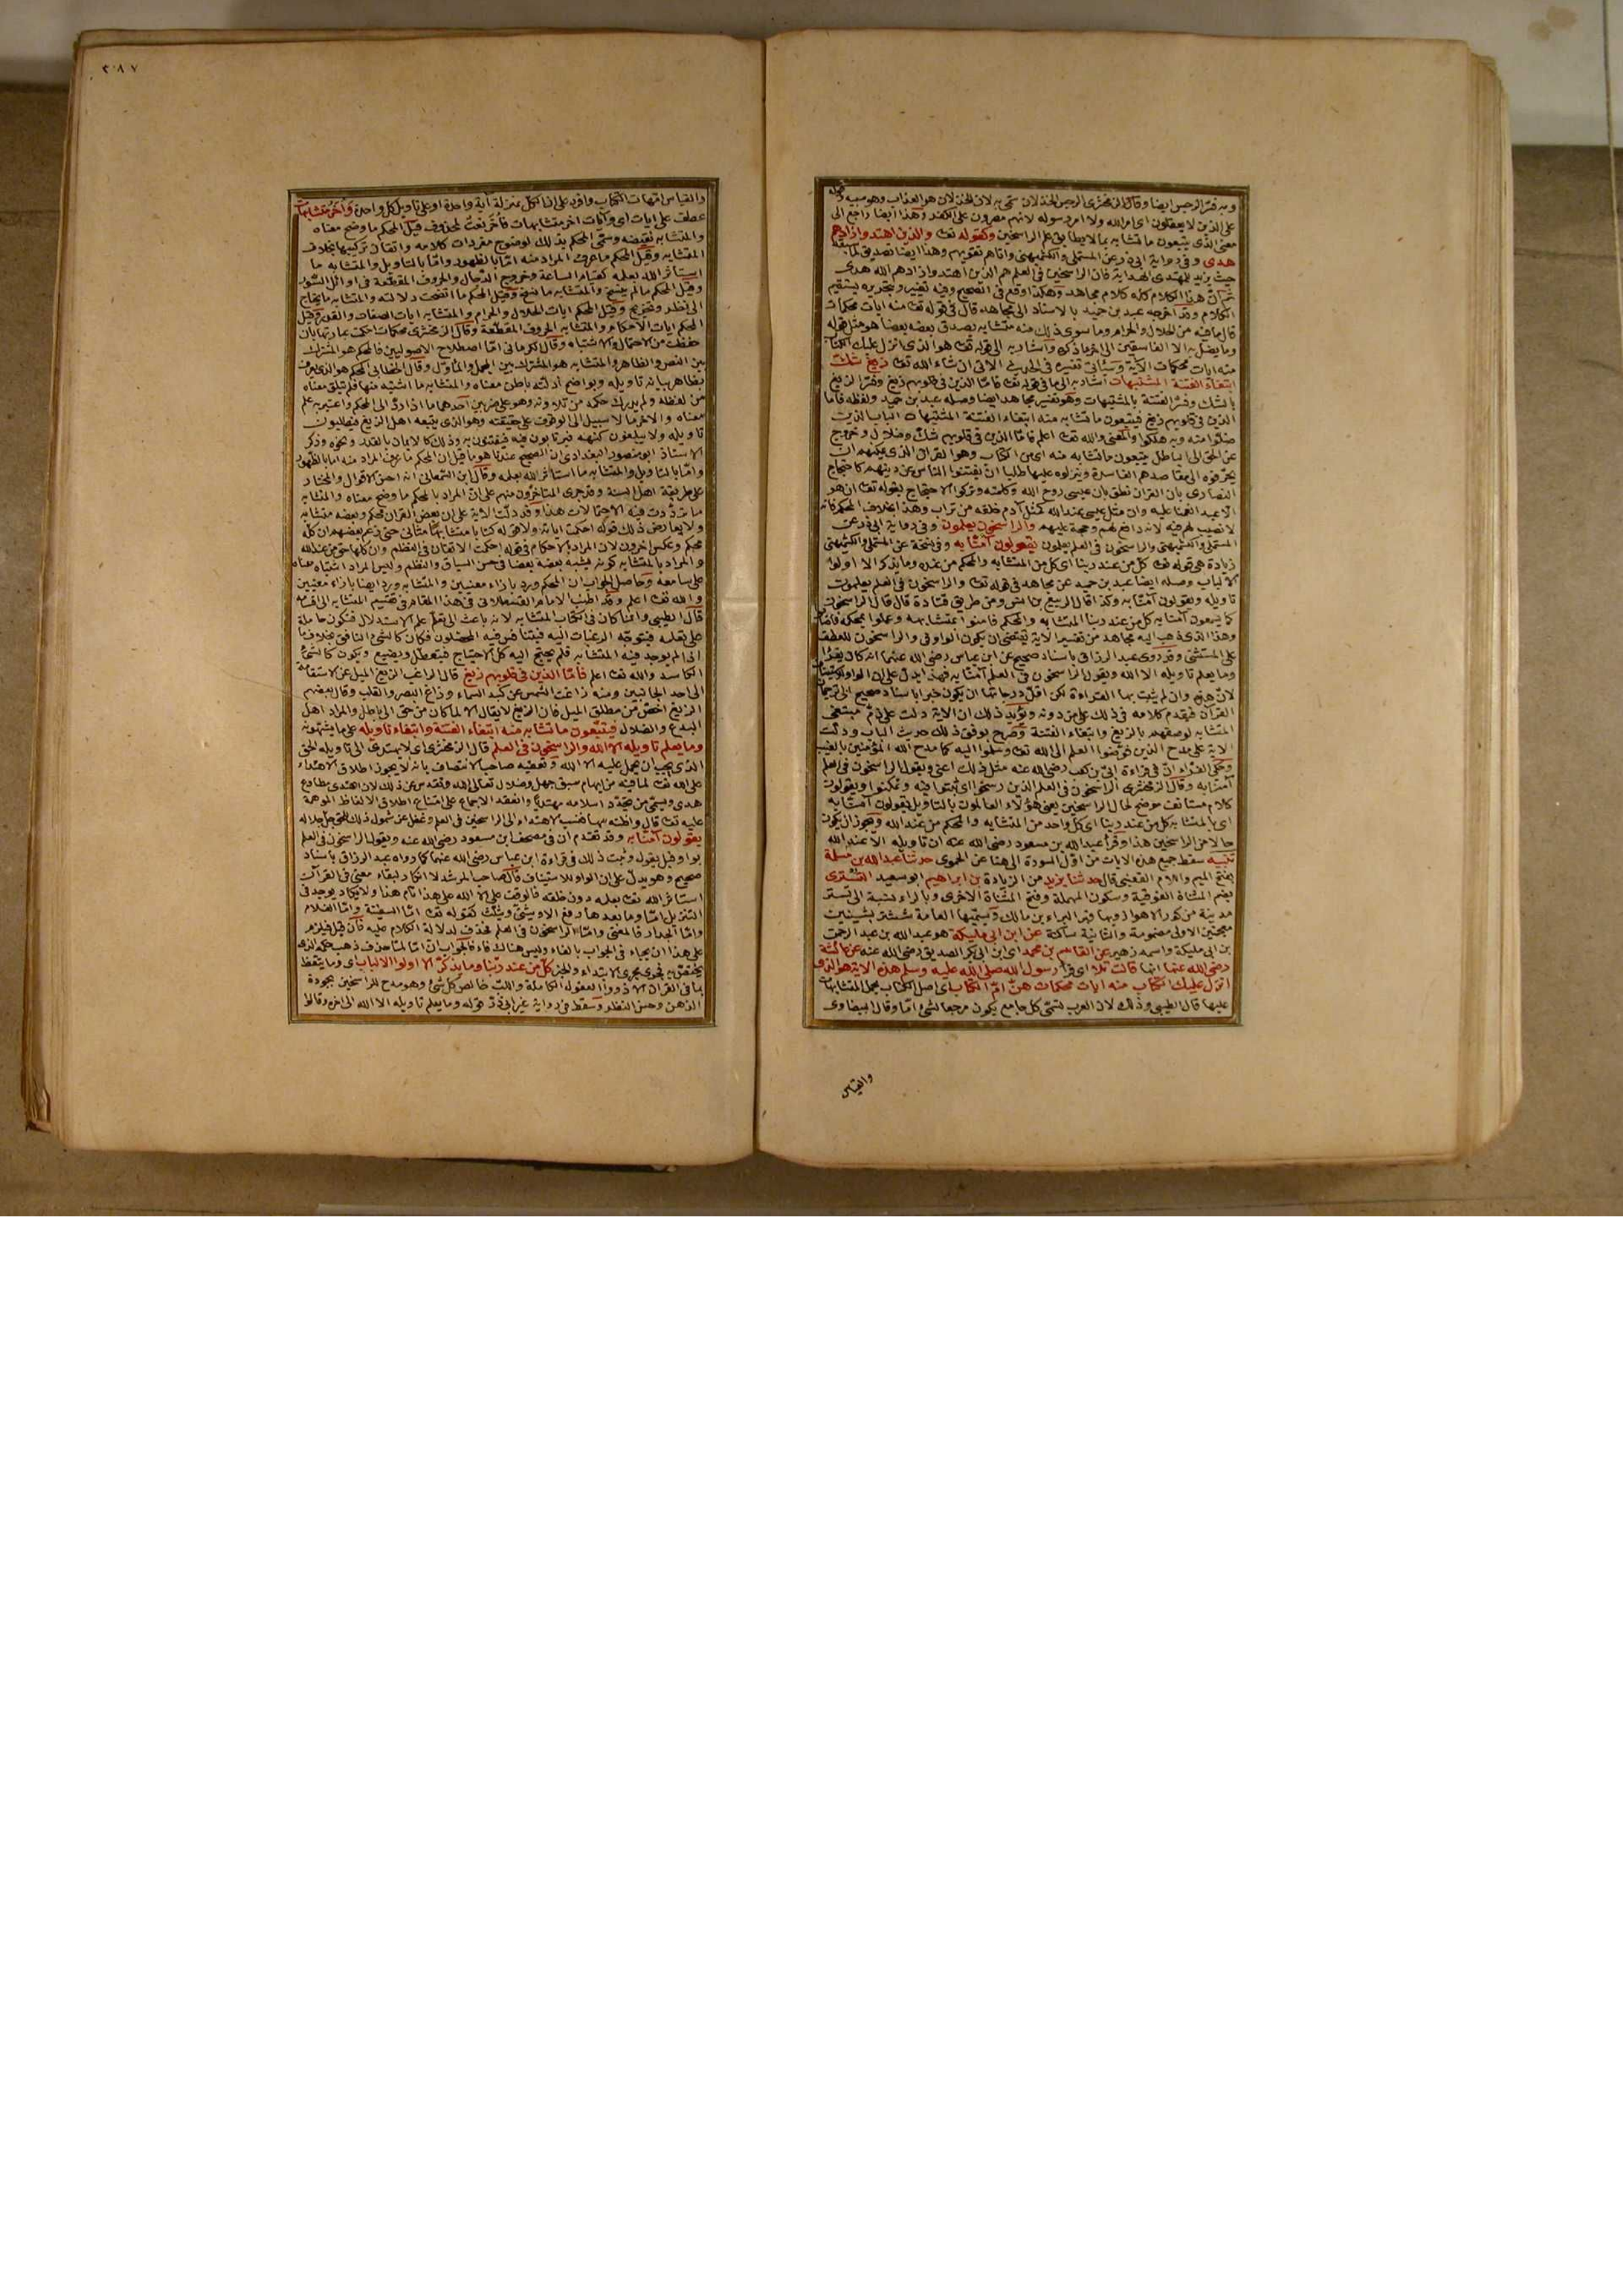 وبه فسّر الرجس ايضا وقال الزمخشرى الرجس الخذلان سمى به لان الخذلان هو العذاب وهو سببه
على الذين لا يعقلون اى امر الله ولا امر رسوله لانهم مصرون على الكفر وهذا ايضا راجع الى
معنى الذى يتبعون ما تشابه بما لا يطابق علم الراسخين وكقوله تعالى والذين اهتدوا زادهم
هدى وفى رواية ابى ذر عن المستملى والكشميهنى واتاهم تقويهم وهذا ايضا تصديق لما
حيث يزيد للمهتدى الهداية فان الراسخين فى العلم هم الذين اهتدوا زادهم الله هدى
ثم انّ هذا الكلام كله كلام مجاهد وهكذا وقع فى الصحيح وفيه تغيير وبتحريره يستقيم
الكلام وقد اخرجه عبد بن حميد بالاسناد الى مجاهد قال فى قوله تعالى منه ايات محكمات
قال ما فيه من الحلال والحرام وما سوى ذلك منه متشابه يصدق بعضه بعضا هو مثل قوله
وما يضل به الا الفاسقين الى اخر ما ذكره واشار به الى قوله تعالى هو الذى انزل عليك الكتاب
منه ايات محكمات الاية وسيأتى تفسيره فى الحديث الاتى ان شاء الله تعالى زيغ شك
ابتغاء الفتنة المشتبهات اشار به الى ما فى قوله تعالى فامّا الذين فى قلوبهم زيغ وفسّر الزيغ
بالشك وفسّر الفتنة بالمشتبهات وهو تفسير مجاهد ايضا وصله عبد بن حميد ولفظه فاما
الذين فى قلوبهم زيغ فيتبعون ما تشابه منه ابتغاء الفتنة المشتبهات الباب الذى
ضلوا منه وبه هلكوا والمعنى والله تعالى اعلم فامّا الذين فى قلوبهم شكّ وضلال وخروج
عن الحق الى الباطل يتبعون ما تشابه منه اى من الكتاب وهو القران الذى يمكنهم ان
يحرّفوه الى مقاصدهم الفاسدة وينزلوه عليها طلبا ان يفتنوا الناس عن دينهم كاحتجاج
النصارى بان القران نطق بان عيسى روح الله وكلمته وتركوا الاحتجاج بقوله تعالى ان هو
الا عبد انعمنا عليه وان مثل عيسى عند الله كمثل آدم خلقه من تراب وهذا بخلاف المحكم فانه
لا نصيب لهم فيه لانه دافع لهم وحجة عليهم والراسخون يعلمون وفى رواية ابى ذر عن
المستملى والكشميهنى والراسخون فى العلم يعلمون يقولون آمنّا به وفى نسخة عن المستملى والكشميهنى
زيادة هى قوله تعالى كل من عند ربنا اى كل من المتشابه والمحكم من عنده وما يذكر الا اولوا
الالباب وصله ايضا عبد بن حميد عن مجاهد فى قوله تعالى والراسخون فى العلم يعلمون
تاويله ويقولون آمنّا به وكذا قال الربيع بن انس ومن طريق قتادة قال قال الراسخون
كما يسمعون آمنا به كل من عند ربنا المتشابه والمحكم فامنوا بمتشابهه وعملوا بمحكمه فاصابوا
وهذا الذى ذهب اليه مجاهد من تفسير الاية يقتضى ان يكون الواو فى والراسخون للعطف
على المستثنى وقد روى عبد الرزاق باسناد صحيح عن ابن عباس رضى الله عنهما انه كان يقرأ
وما يعلم تاويله الا الله ويقول الراسخون فى العلم آمنّا به فهذا يدلّ على ان الواو للاستيناف
لانّ هذه وان لم يثبت بها القراءة لكن اقلّ درجاتها ان يكون خبرا باسناد صحيح الى ترجمان
القرآن فيقدم كلامه فى ذلك على من دونه ويؤيد ذلك ان الاية دلت على ذمّ مبتغى
المتشابه لوصفهم بالزيغ وابتغاء الفتنة وصرّح بوفق ذلك حديث الباب ودلّت
الاية على مدح الذين فوّضوا العلم الى الله تعالى وسلّموا اليه كما مدح الله المؤمنين بالغيب
وحكى الفرّاء ان فى قراءة ابىّ بن كعب رضى الله عنه مثل ذلك اعنى ويقول الراسخون فى العلم
آمنّا به وقال الزمخشرى الراسخون فى العلم الذين رسخوا اى ثبتوا فيه وتمكنوا ويقولون
كلام مستانف موضح لحال الراسخين يعنى هؤلاء العالمون بالتاويل يقولون آمنّا به
اى بالمتشابه كل من عند ربنا اى كل واحد من المتشابه والمحكم من عند الله ويجوز ان يكون
حالا من الراسخين هذا وقرأ عبد الله بن مسعود رضى الله عنه ان تاويله الا عند الله
تنبيه سقط جميع هذه الايات من اوّل السورة الى هنا عن الحموى حدثنا عبد الله بن مسلمة
بفتح الميم واللام القعنبى قال حدثنا يزيد من الزيادة بن ابراهيم ابو سعيد التسترى
بضم المثناة الفوقية وسكون المهملة وفتح المثناة الاخرى وبالراء نسبة الى تستر
مدينة من كور الاهواز وبها قبر البراء بن مالك وتسميها العامة شششتر بشينين
معجمتين الاولى مضمومة والثانية ساكنة عن ابن ابى مليكة هو عبد الله بن عبد الرحمن
بن ابى مليكة واسمه زهير عن القاسم بن محمد اى ابن ابى بكر الصديق رضى الله عنه عن عائشة
رضى الله عنها انها قالت تلا اى قرأ رسول الله صلى الله عليه وسلم هذه الاية هو الذى
انزل عليك الكتاب منه ايات محكمات هنّ امّ الكتاب اى اصل الكتاب يحمل المتشابهات
عليها قال الطيبى وذلك لان العرب تسمّى كل جامع يكون مرجعا لشئ امّا وقال البيضاوى
والقياس
٢٠٨٧
والقياس امّهات الكتاب وافرد على انّ الكل بمنزلة آية واحدة او على تاويل كل واحدة وأخر متشابهات
عطف على ايات اى وآيات اخر متشابهات فأخر نعت لمحذوف قيل المحكم ما وضح معناه
والمتشابه نقيضه وسمّى المحكم بذلك لوضوح مفردات كلامه واتقان تركيبها بخلاف
المتشابه وقيل المحكم ما عرف المراد منه امّا بالظهور وامّا بالتاويل والمتشابه ما
استأثر الله بعلمه كقيام الساعة وخروج الدجال والحروف المقطعة فى اوائل السّور
وقيل المحكم ما لم ينسخ والمتشابه ما نسخ وقيل المحكم ما اتضحت دلالته والمتشابه ما يحتاج
الى نظر وتخريج وقيل المحكم ايات الحلال والحرام والمتشابه ايات الصفات والقدر وقيل
المحكم ايات الاحكام والمتشابه الحروف المقطّعة وقال الزمخشرى محكمات احكمت عبارتها بان
حفظت من الاحتمال والاشتباه وقال الكرمانى امّا اصطلاح الاصوليين فالمحكم هو المشترك
بين النص والظاهر والمتشابه هو المشترك بين المجمل والمأوّل وقال الخطابى المحكم هو الذى يعرف
بظاهر بيانه تاويله وبواضح ادلته باطن معناه والمتشابه ما اشتبه منها فلم يتلق معناه
من لفظه ولم يدرك حكمه من تلاوته وهو على ضربين احدهما ما اذا ردّ الى المحكم واعتبر به علم
معناه والاخر ما لا سبيل الى الوقوف على حقيقته وهو الذى يتبعه اهل الزيغ فيطلبون
تاويله ولا يبلغون كنهه فيرتابون فيه فيفتنون به وذلك كالايمان بالقدر ونحوه وذكر
الاستاذ ابو منصور البغدادى ان الصحيح عندنا هو ما قيل ان المحكم ما عرف المراد منه اما بالظهور
وامّا بالتاويل والمتشابه ما استأثر الله بعلمه وقال ابن السمعانى انه احسن الاقوال والمختار
على طريقة اهل السنة وقد جرى المتاخرون منهم على ان المراد بالمحكم ما وضح معناه والمتشابه
ما تردّدت فيه الاحتمالات هذا وقد دلّت الاية على ان بعض القران محكم وبعضه متشابه
ولا يعارض ذلك قوله احكمت اياته ولا قوله كتابا متشابها مثانى حتى زعم بعضهم ان كلّه
محكم وعكس اخرون لان المراد بالاحكام فى قوله احكمت الاتقان فى النظم وان كلها حق من عند الله
والمراد بالمتشابه كونه يشبه بعضه بعضا فى حسن السياق والنظم وليس المراد اشتباه معناه
على سامعه وحاصل الجواب ان المحكم ورد بازاء معنيين والمتشابه ورد ايضا بازاء معنيين
والله تعالى اعلم وقد اطنب الامام القسطلانى فى هذا المقام فى تقسيم المتشابه الى اقسامه
قال الطيبى وانما كان فى الكتاب المتشابه لانه باعث الى تعلّم علم الاستدلال فتكون حاملة
على تعلمه فتتوجّه الرغبات اليه فيتنافس فيه المحصلون فكان كالشئ النافق بخلاف ما
اذا لم يوجد فيه المتشابه فلم يحتج اليه كل الاحتياج فيتعطل ويضيع ويكون كالشئ
الكاسد والله تعالى اعلم فأمّا الذين فى قلوبهم زيغ قال الراغب الزيغ الميل عن الاستقامة
الى احد الجانبين ومنه زاغت الشمس عن كبد السماء وزاغ البصر والقلب وقال بعضهم
الزيغ اخصّ من مطلق الميل فان الزيغ لا يقال الا لما كان من حق الى باطل والمراد اهل
البدع والضلال فيتّبعون ما تشابه منه ابتغاء الفتنة وابتغاء تاويله على ما يشتهونه
وما يعلم تاويله الا الله والراسخون فى العلم قال الزمخشرى اى لا يهتدى الى تاويله الحق
الذى يجب ان يحمل عليه الا الله وتعقبه صاحب الانتصاف بانه لا يجوز اطلاق الاهتداء
على الله تعالى لما فيه من ايهام سبق جهل وضلال تعالى الله وتقدس عن ذلك لان اهتدى مطاوع
هدى ويسمّى من تجدّد اسلامه مهتديًا وانعقد الاجماع على امتناع اطلاق الالفاظ الموهمة
عليه تعالى قال واظنه سها فنسب الاهتداء الى الراسخين فى العلم وغفل عن شمول ذلك الحق جلّ جلاله
يقولون آمنّا به وقد تقدم ان فى مصحف ابن مسعود رضى الله عنه ويقول الراسخون فى العلم
بواو قبل يقول وثبت ذلك فى قراءة ابن عباس رضى الله عنهما كما رواه عبد الرزاق باسناد
صحيح وهو يدلّ على ان الواو للاستيناف قال صاحب المرشد لا انكار لبقاء معنى فى القرآن
استأثر الله تعالى بعلمه دون خلقه فالوقف على الا الله على هذا تام هذا ولا يكاد يوجد فى
التنزيل امّا وما بعدها رفع الا ويثنّى ويثلّث كقوله تعالى امّا السفينة وامّا الغلام
وامّا الجدار فالمعنى وامّا الراسخون فى العلم فحذف لدلالة الكلام عليه فان قيل فيلزم
على هذا ان يجاء فى الجواب بالفاء وليس هناك فاء فالجواب ان امّا لمّا حذف ذهب حكمه الذى
يختصّ به فجرى مجرى الابتداء والخبر كلّ من عند ربّنا وما يذكّر الا اولوا الالباب اى وما يتعظ
بما فى القرآن الا ذووا العقول الكاملة واللبّ خالص كل شئ وهو مدح للراسخين بجودة
الذهن وحسن النظر وسقط فى رواية غير ابى ذرّ قوله وما يعلم تاويله الا الله الى اخره وقالوا